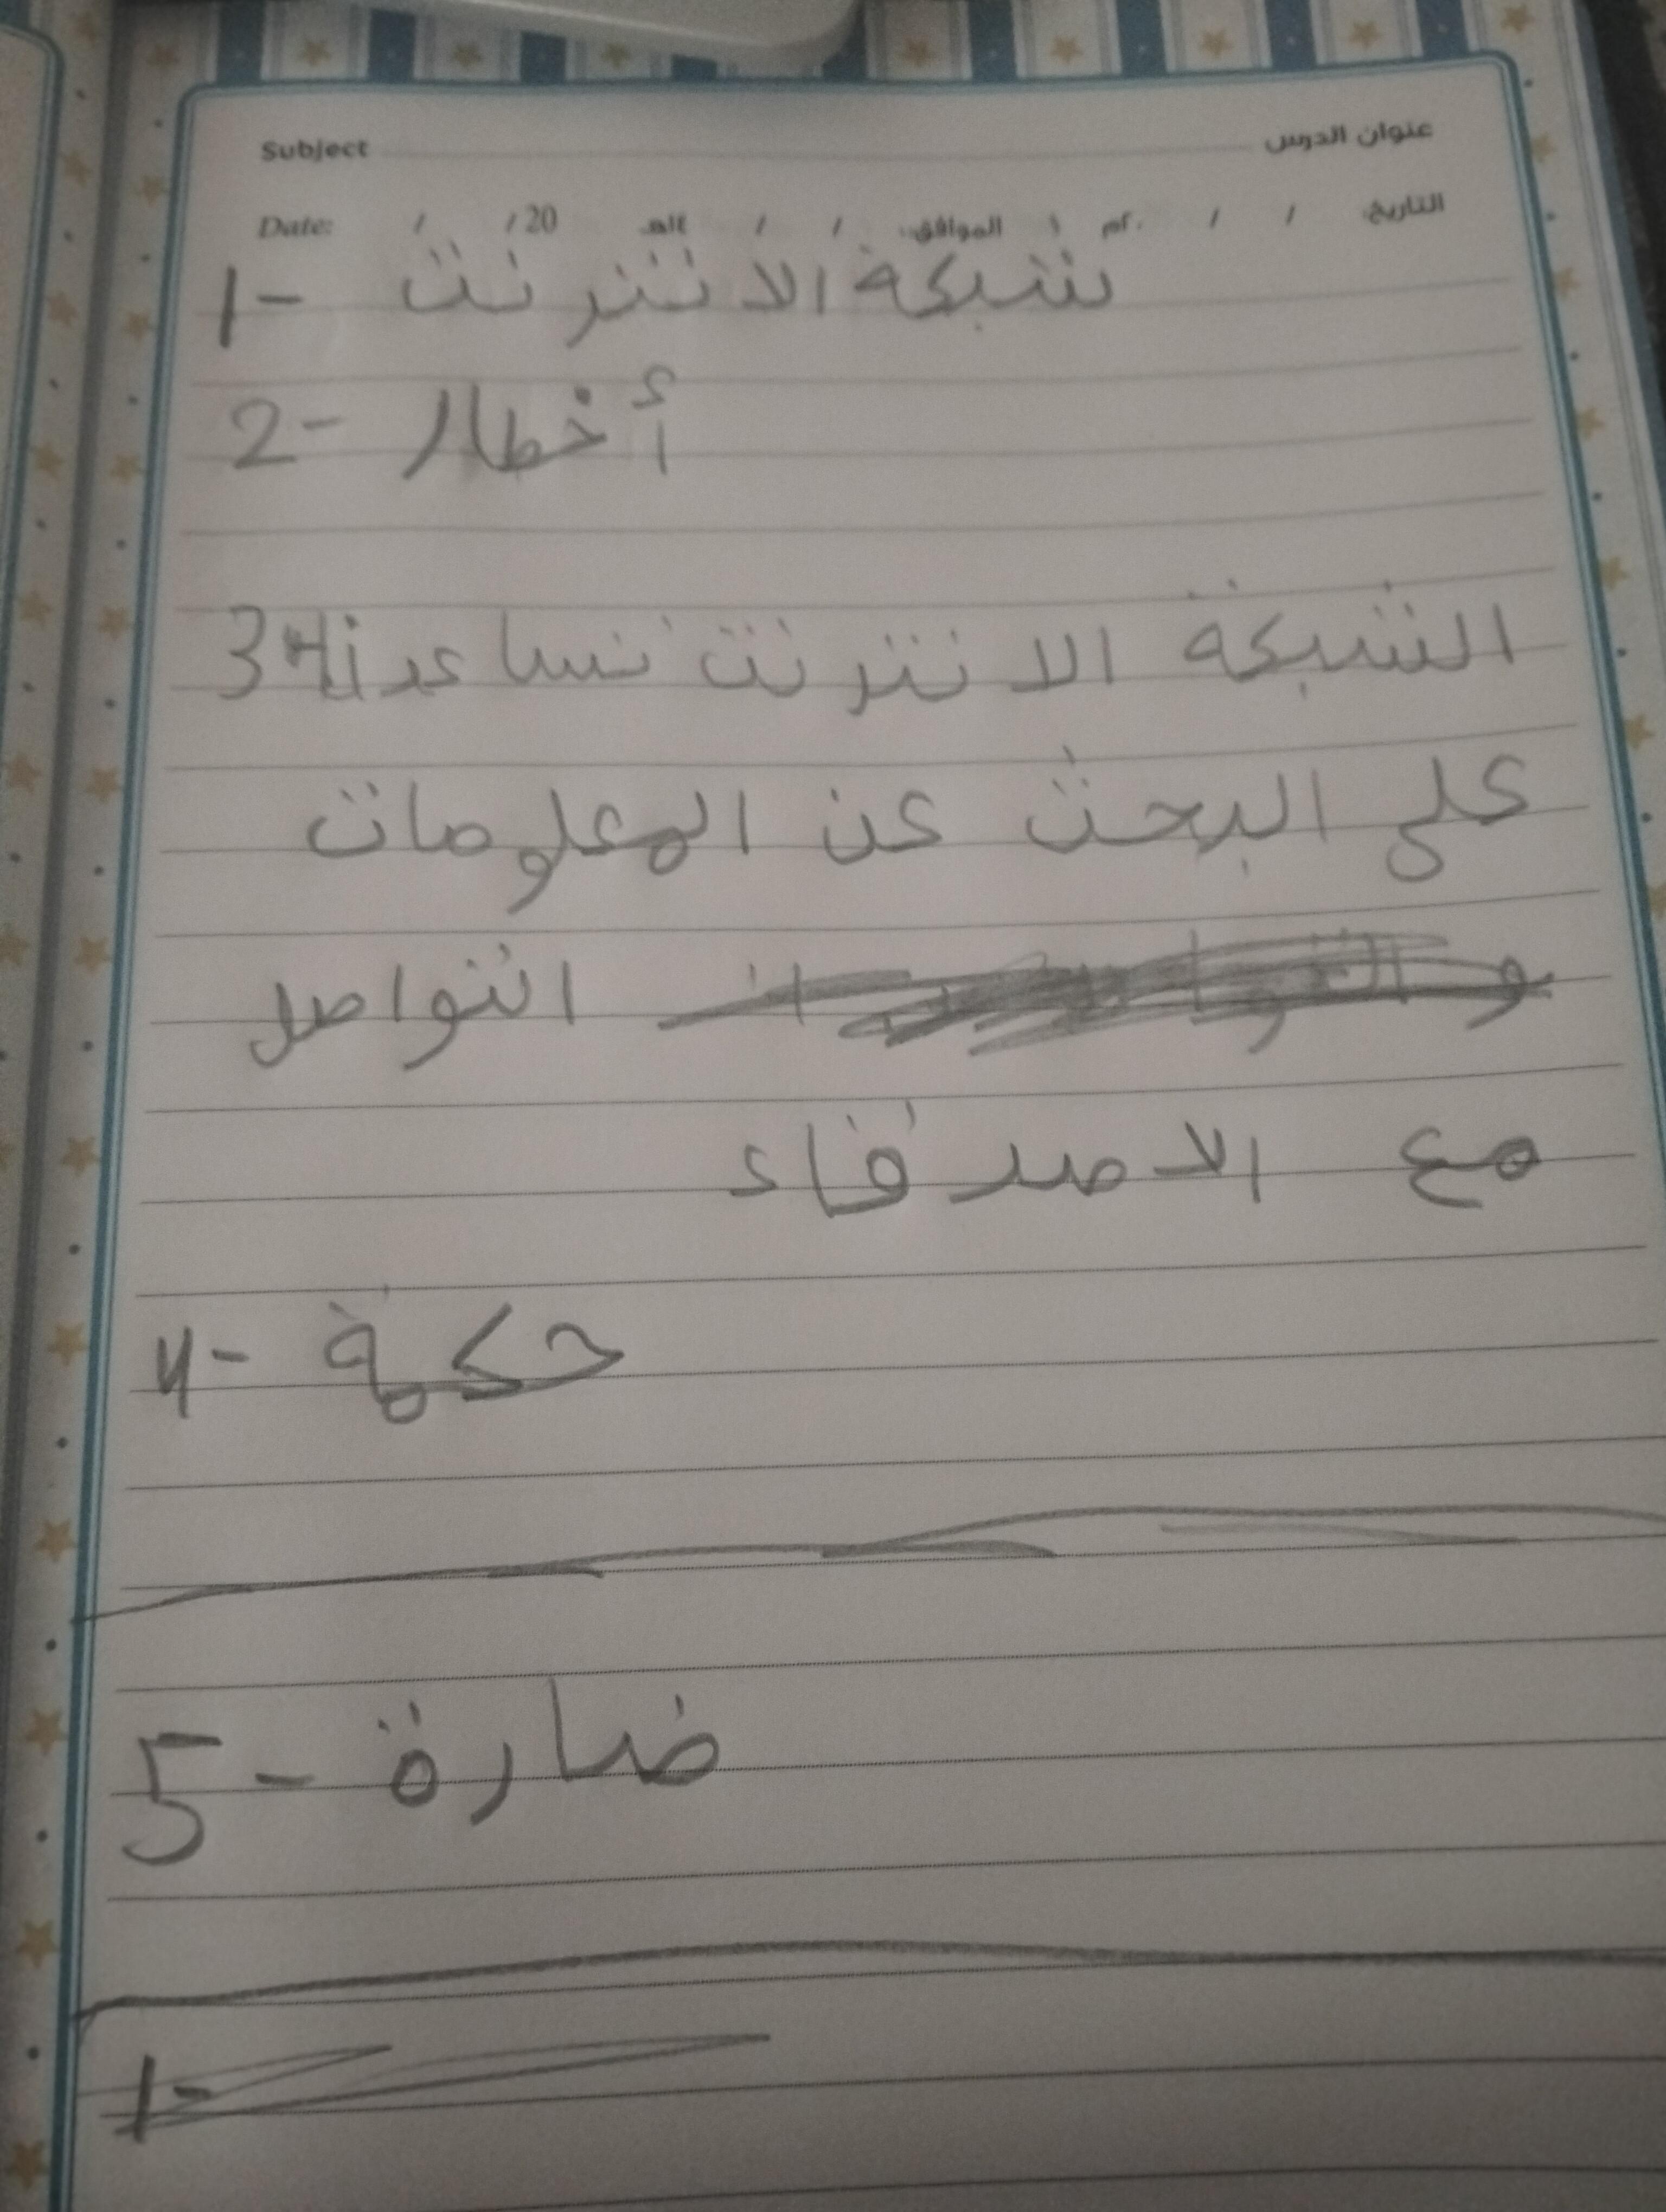 Subject عنوان الدرس
Date: / /20 الموافق: / / التاريخ: / /
1- شبكة الانترنت
2- أخطار
3- الشبكة الانترنت تساعدنا
على البحث عن المعلومات
و التواصل
مع الاصدقاء
4- حكمة
5- ضارة
1-